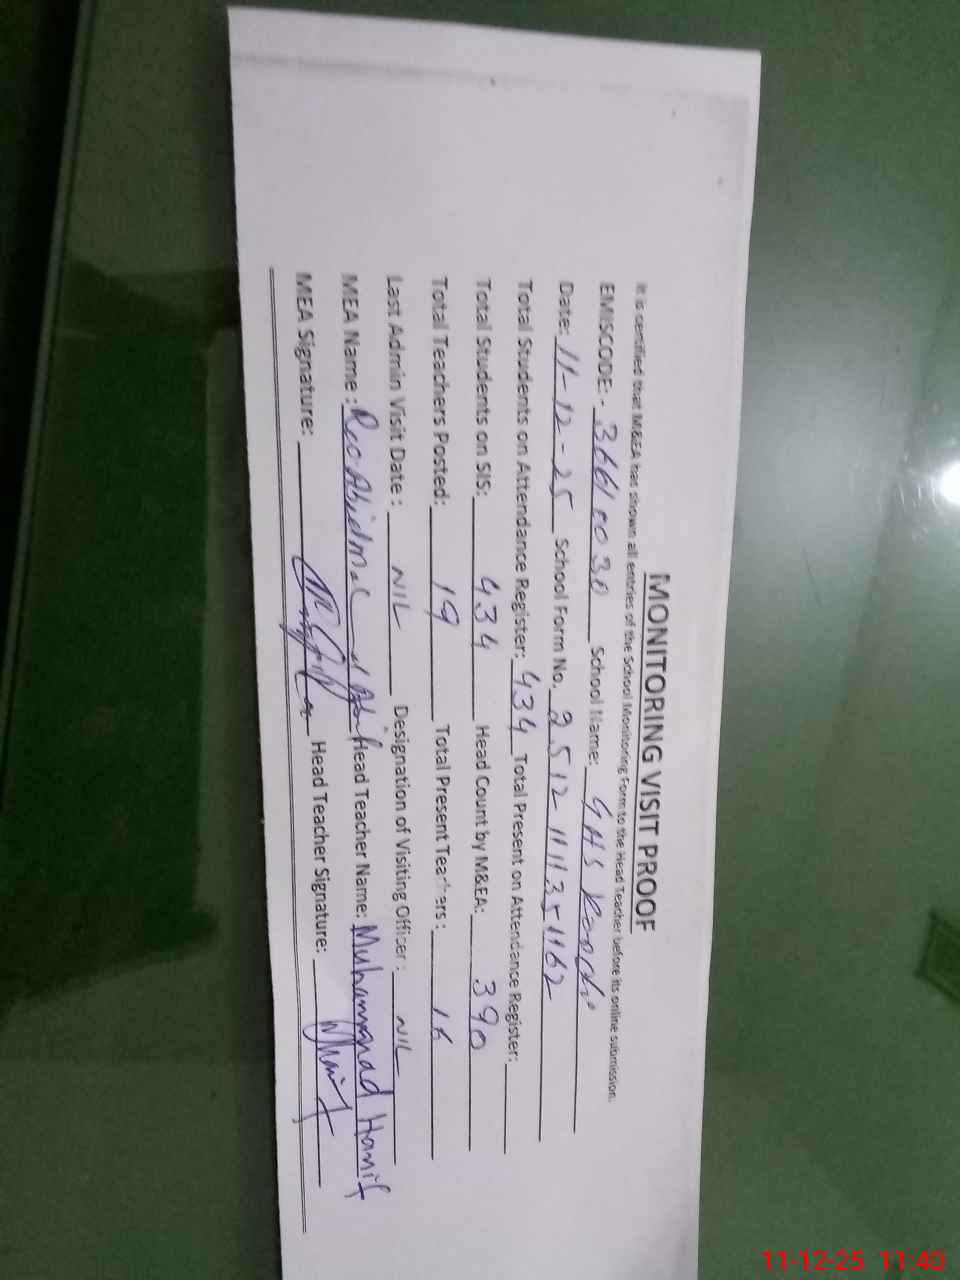 MONITORING VISIT PROOF
It is certified that M&EA has shown all entries of the School Monitoring Form to the Head Teacher before its online submission.
EMISCODE: - 36610030 School Name: GHS
Date: 11-12-25 School Form No. 25121111351162
Total Students on Attendance Register: 434 Total Present on Attendance Register:
Total Students on SIS: 434 Head Count by M&EA: 390
Total Teachers Posted: 19 Total Present Teachers: 16
Last Admin Visit Date: NIL Designation of Visiting Officer: NIL
MEA Name: Head Teacher Name: Muhammad Hanif
MEA Signature: Head Teacher Signature:
11-12-25 11:40